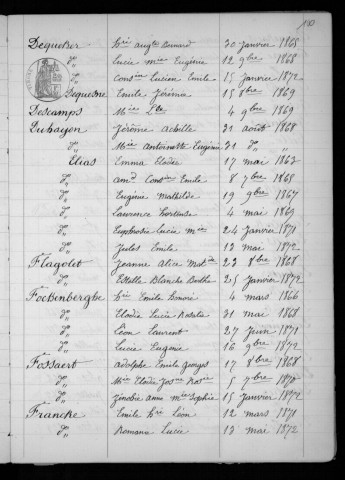 180
Dequeker hri augte Bernard 30 janvier 1868
d° Lucie mie Eugénie 12 9bre 1868
d° Constin Lucien Emile 15 janvier 1872
Dequesne Emile Jérémie 15 8bre 1869
Descamps Mie 4 9bre 1869
Dubayon Jérôme Achille 31 août 1868
d° Mie Antoinette Eugénie 31 d° "
Elias Emma Elodie 17 mai 1863
d° amd Constin Emile 8 7bre 1865
d° Eugénie Mathilde 19 9bre 1867
d° Laurence hortense 4 mai 1869
d° Euphrosie Lucie mie 24 janvier 1871
d° Jules Emile 12 mai 1872
Flagolet Jeanne Alice 22 8bre 1868
d° Estelle Blanche Berthe 25 janvier 1872
Fockenberghe hri Emile honoré 4 mars 1866
d° Elodie Lucie Rosalie 31 mai 1868
d° Léon Laurent 27 juin 1871
d° Lucie Eugénie 16 9bre 1872
Fossaert adolphe Emile georges 17 8bre 1868
d° Mie Elodie 5 7bre 1870
d° Zénobie anne mie Sophie 15 janvier 1872
Franche Emile hri Léon 12 mars 1871
d° Romana Lucie 13 mai 1872